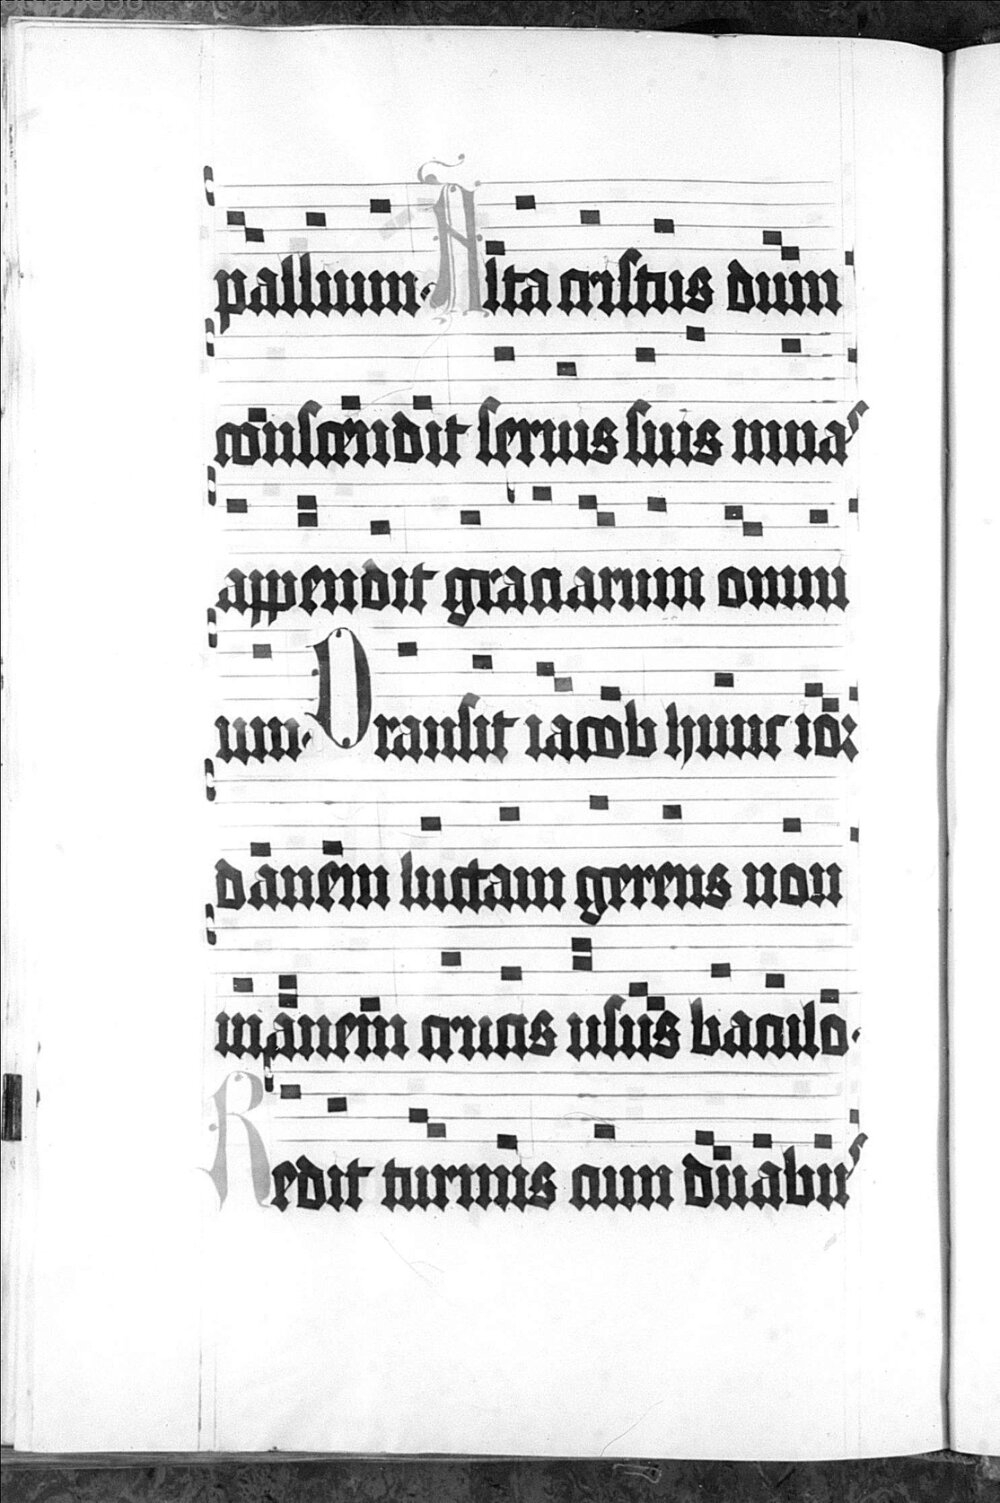 pallium. Alta cristus dum
conscendit seruis suis mnas
appendit graciarum omni
um. Transit iacob hunc ior
danem luctam gerens non
inanem crucis usus baculo.
Redit turmis cum duabus